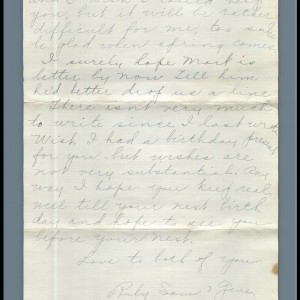 and I wish I could help
you, but it will be rather
difficult for me, too. Will
be glad when spring comes.
I surely hope Mart is
better by now. Tell him
he'd better drop us a line.
There isn't very much
to write since I last wrote.
Wish I had a birthday present
for you but wishes are
not very substantial. Any
way I hope you keep real
well till your next birth
day and hope to see you
before your next.
Love to both of you
Ruby